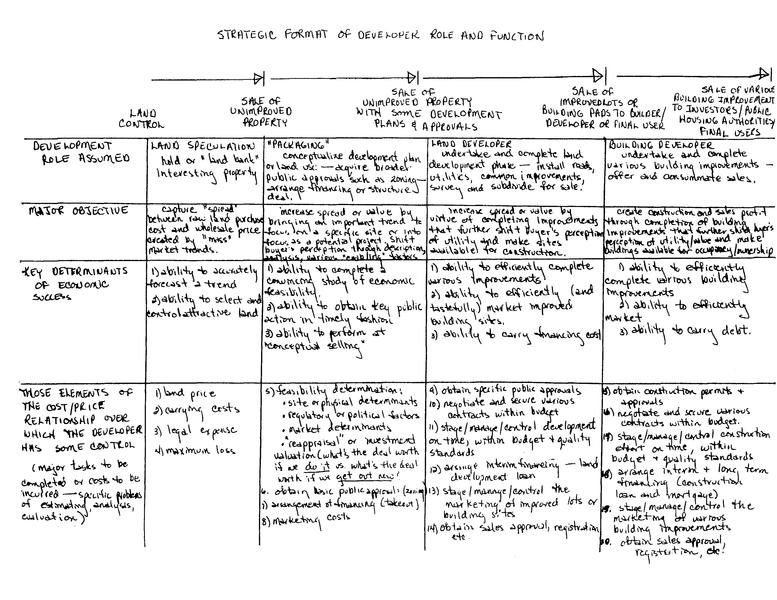 STRATEGIC FORMAT OF DEVELOPER ROLE AND FUNCTION
LAND
CONTROL
SALE OF
UNIMPROVED
PROPERTY
SALE OF
UNIMPROVED PROPERTY
WITH SOME DEVELOPMENT
PLANS & APPROVALS
SALE OF
IMPROVED LOTS OR
BUILDING PADS TO BUILDER/
DEVELOPER OR FINAL USER
SALE OF VARIOUS
BUILDING IMPROVEMENT
TO INVESTORS/PUBLIC
HOUSING AUTHORITIES/
FINAL USERS
DEVELOPMENT
ROLE ASSUMED
LAND SPECULATION
hold or "land bank"
interesting property
"PACKAGING"
conceptualize development plan
or land use — acquire broader
public approvals such as zoning—
arrange financing or structure
deal.
LAND DEVELOPER
undertake and complete land
development phase — install roads,
utilities, common improvements,
survey and subdivide for sale.
BUILDING DEVELOPER
undertake and complete
various building improvements —
offer and consummate sales.
MAJOR OBJECTIVE
capture "spread"
between raw land purchase
cost and wholesale price
created by
market trends.
increase spread or value by
bringing an important trend to
focus on a specific site or into
focus as a potential project. Shift
buyer's perception through description,
analysis, various "enabling" factors
increase spread or value by
virtue of completing improvements
that further shift buyer's perception
of utility and make sites
available for construction.
create construction and sales profit
through completion of building
improvements that further shift buyer's
perception of utility/value and make
buildings available for occupancy/ownership
KEY DETERMINANTS
OF ECONOMIC
SUCCESS
1) ability to accurately
forecast a trend
2) ability to select and
control attractive land
1) ability to complete a
convincing study of economic
feasibility.
2) ability to obtain key public
action in timely fashion
3) ability to perform at
"conceptual selling"
1) ability to efficiently complete
various improvements
2) ability to efficiently (and
tastefully) market improved
building sites.
3) ability to carry financing cost
1) ability to efficiently
complete various building
improvements
2) ability to efficiently
market
3) ability to carry debt.
THOSE ELEMENTS OF
THE COST/PRICE
RELATIONSHIP OVER
WHICH THE DEVELOPER
HAS SOME CONTROL
(major tasks to be
completed or costs to be
incurred — specific problems
of estimating, analysis,
evaluation)
1) land price
2) carrying costs
3) legal expense
4) maximum loss
5) feasibility determination:
• site or physical determinants
• regulatory or political factors
• market determinants
• "reappraisal" or investment
valuation (what's the deal worth
if we do it vs. what's the deal
worth if we get out now?
6. obtain basic public approval: (zoning)
7) arrangement of financing (takeout)
8) marketing costs
9) obtain specific public approvals
10) negotiate and secure various
contracts within budget
11) stage/manage/control development
on time, within budget & quality
standards
12) arrange interim financing — land
development loan
13) stage/manage/control the
marketing of improved lots or
building sites
14) obtain sales approval, registration,
etc.
15) obtain construction permits &
approvals
16) negotiate and secure various
contracts within budget.
17) stage/manage/control construction
effort on time, within
budget & quality standards
18) arrange interim & long term
financing (construction
loan and mortgage)
19. stage/manage/control the
marketing of various
building improvements
20. obtain sales approval,
registration, etc.